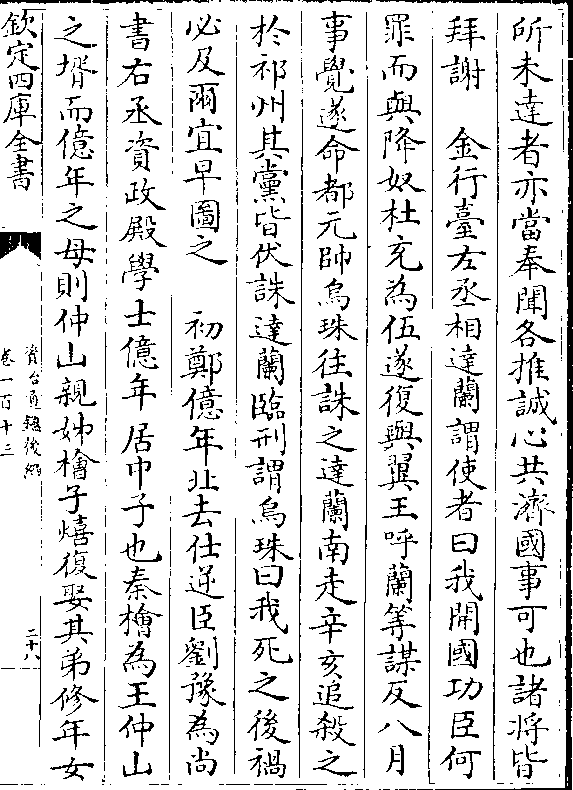 所未達者亦當奉聞各推誠心共濟國事可也諸将皆
拜謝　金行臺左丞相達蘭謂使者曰我開國功臣何
罪而與降奴杜充為伍遂復與翼王呼蘭等謀反八月
事覺遂命都元帥烏珠往誅之達蘭南走辛亥追殺之
於祁州其黨皆伏誅達蘭臨刑謂烏珠曰我死之後禍
必及爾宜早圖之　初鄭億年北去仕逆臣劉豫為尚
書右丞資政殿學士億年居中子也秦檜為王仲山
之壻而億年之母則仲山親姊檜子熺復娶其弟修年女
欽定四庫全書
資治通鑑後編
卷一百十三
二十八